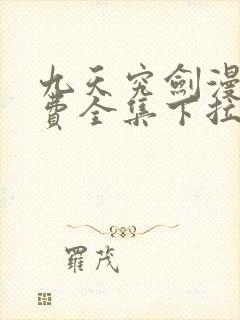 九天究劍漫
費全集下拉
羅茂